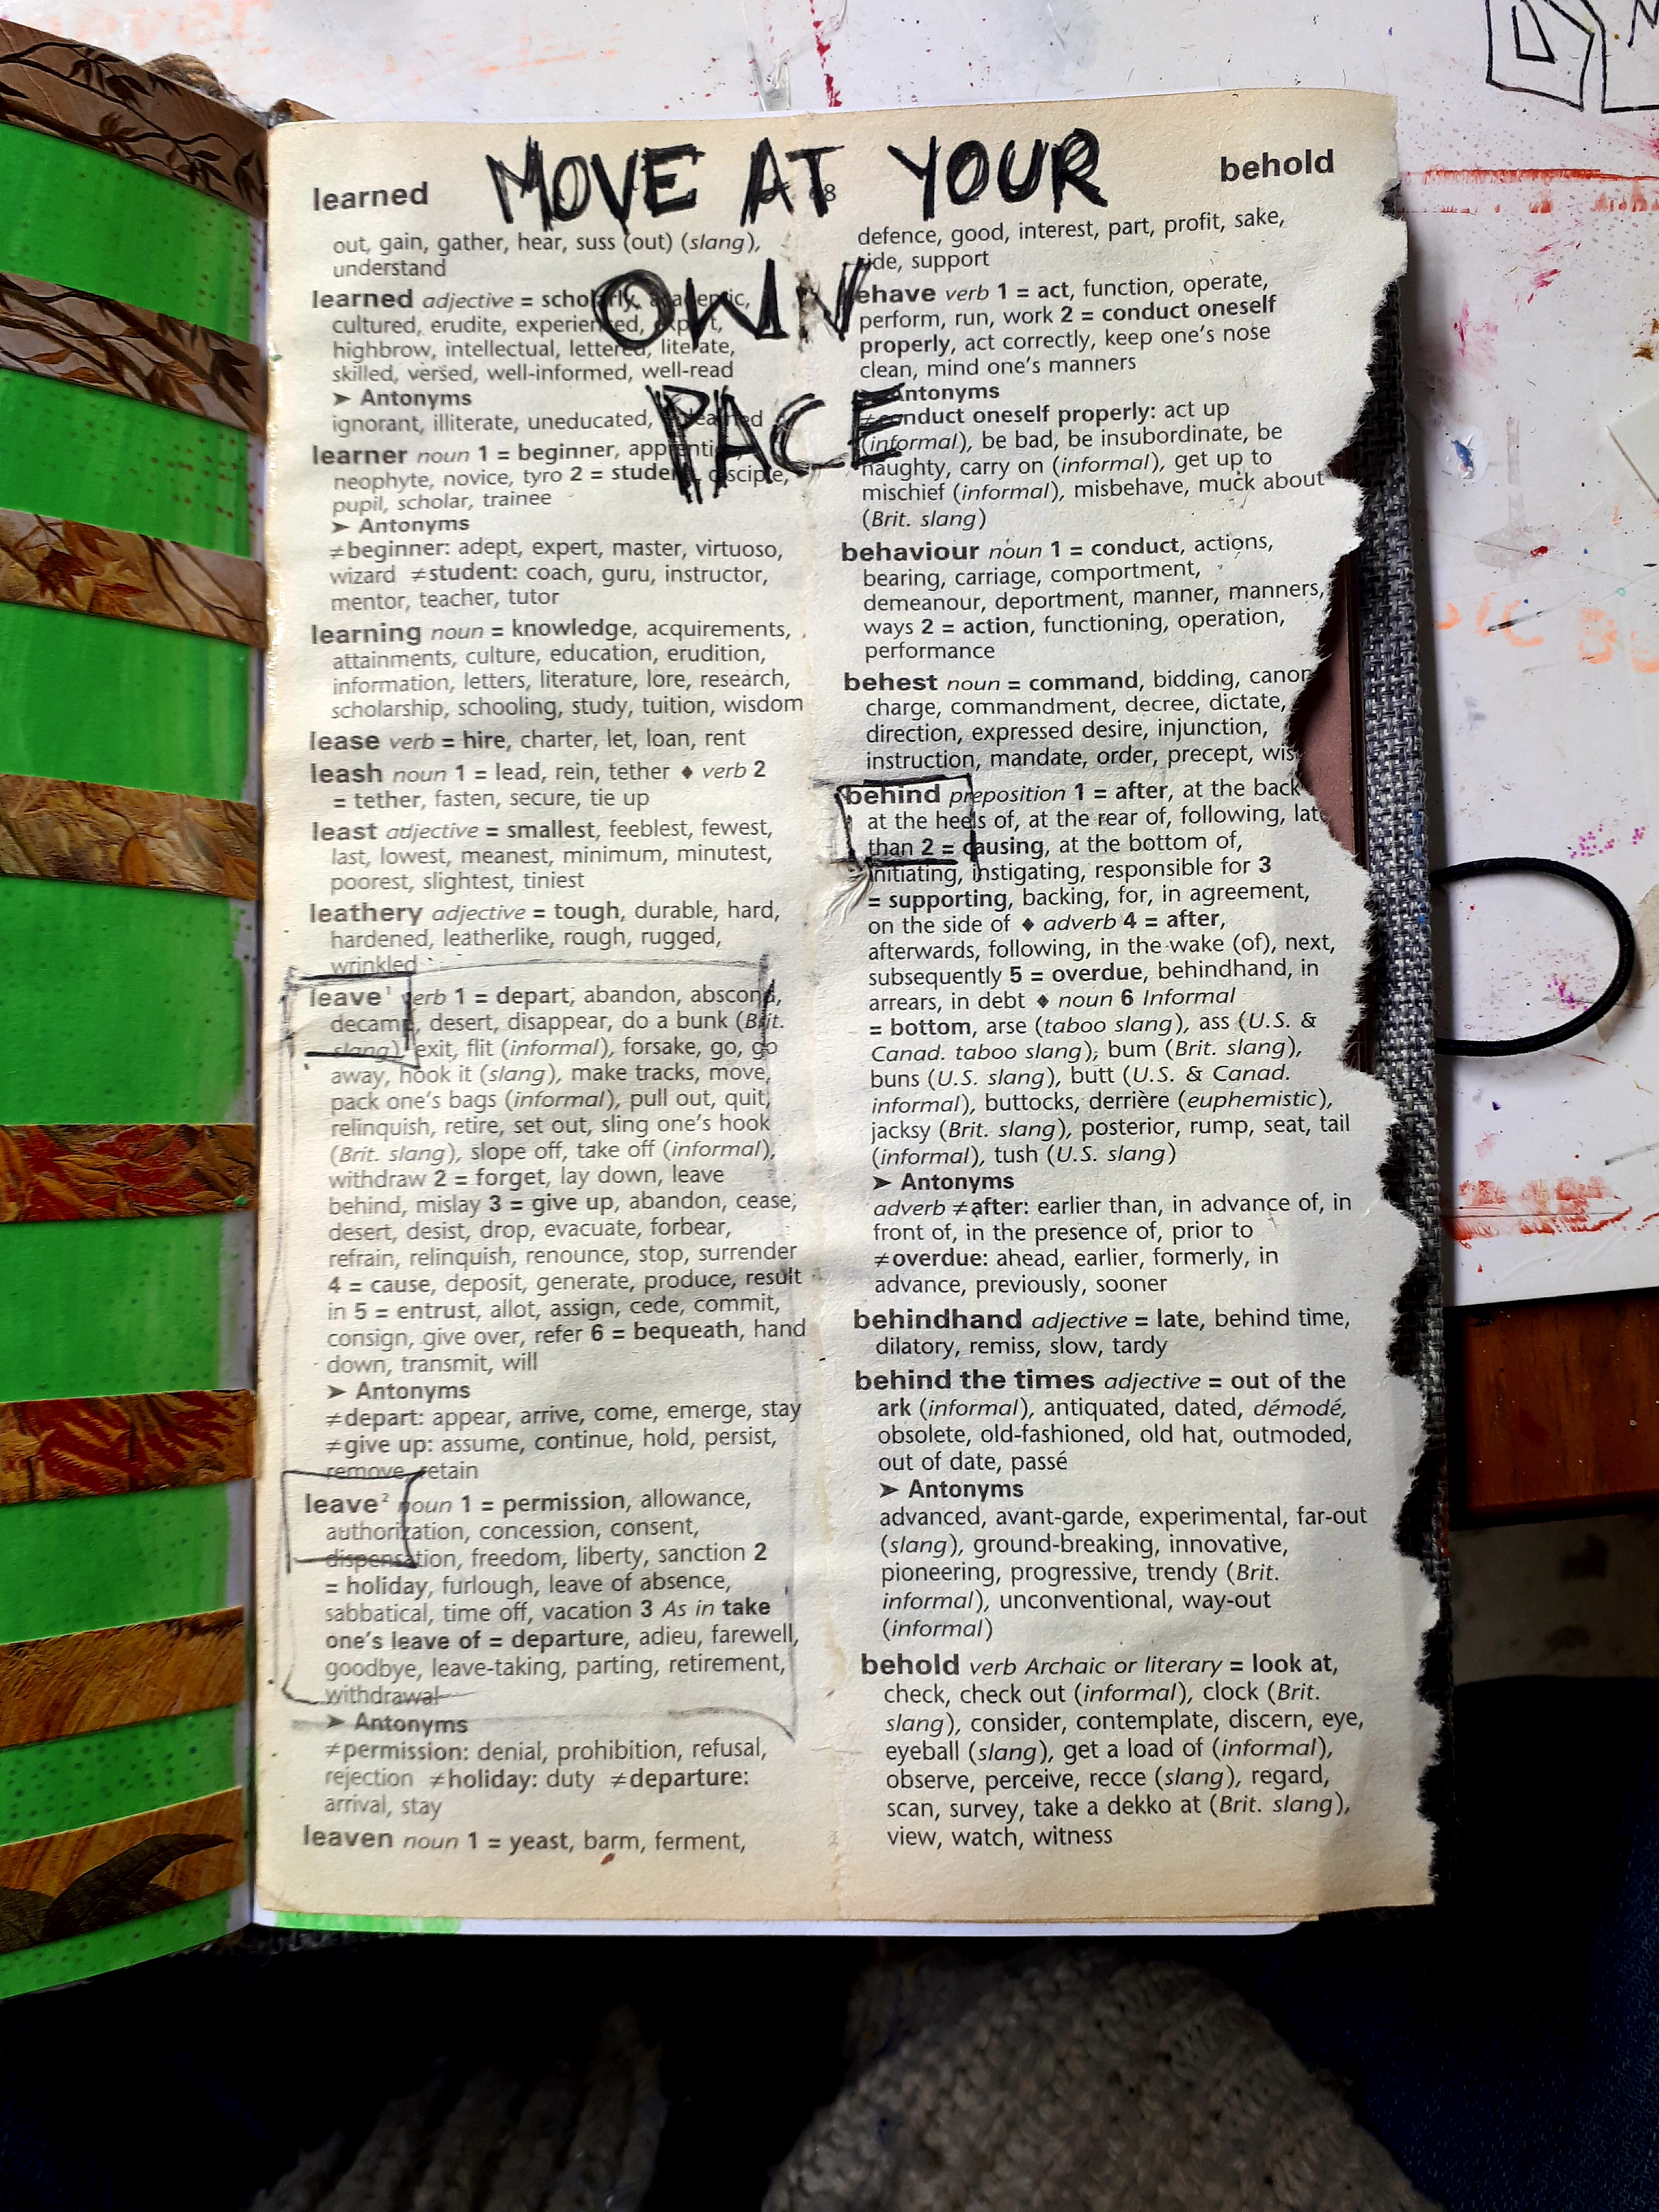 MOVE AT YOUR
OWN
PACE
learned
out, gain, gather, hear, suss (out) (slang),
understand
learned adjective = scholarly, academic,
cultured, erudite, experienced, expert,
highbrow, intellectual, lettered, literate,
skilled, versed, well-informed, well-read
➤ Antonyms
ignorant, illiterate, uneducated,
learner noun 1 = beginner, apprentice,
neophyte, novice, tyro 2 = student, disciple,
pupil, scholar, trainee
➤ Antonyms
≠beginner: adept, expert, master, virtuoso,
wizard ≠student: coach, guru, instructor,
mentor, teacher, tutor
learning noun = knowledge, acquirements,
attainments, culture, education, erudition,
information, letters, literature, lore, research,
scholarship, schooling, study, tuition, wisdom
lease verb = hire, charter, let, loan, rent
leash noun 1 = lead, rein, tether ♦ verb 2
= tether, fasten, secure, tie up
least adjective = smallest, feeblest, fewest,
last, lowest, meanest, minimum, minutest,
poorest, slightest, tiniest
leathery adjective = tough, durable, hard,
hardened, leatherlike, rough, rugged,
wrinkled
leave¹ verb 1 = depart, abandon, abscond,
decamp, desert, disappear, do a bunk (Brit.
slang), exit, flit (informal), forsake, go, go
away, hook it (slang), make tracks, move,
pack one's bags (informal), pull out, quit,
relinquish, retire, set out, sling one's hook
(Brit. slang), slope off, take off (informal),
withdraw 2 = forget, lay down, leave
behind, mislay 3 = give up, abandon, cease,
desert, desist, drop, evacuate, forbear,
refrain, relinquish, renounce, stop, surrender
4 = cause, deposit, generate, produce, result
in 5 = entrust, allot, assign, cede, commit,
consign, give over, refer 6 = bequeath, hand
down, transmit, will
➤ Antonyms
≠depart: appear, arrive, come, emerge, stay
≠give up: assume, continue, hold, persist,
remove, retain
leave² noun 1 = permission, allowance,
authorization, concession, consent,
dispensation, freedom, liberty, sanction 2
= holiday, furlough, leave of absence,
sabbatical, time off, vacation 3 As in take
one's leave of = departure, adieu, farewell,
goodbye, leave-taking, parting, retirement,
withdrawal
➤ Antonyms
≠permission: denial, prohibition, refusal,
rejection ≠holiday: duty ≠departure:
arrival, stay
leaven noun 1 = yeast, barm, ferment,
behold
defence, good, interest, part, profit, sake,
side, support
behave verb 1 = act, function, operate,
perform, run, work 2 = conduct oneself
properly, act correctly, keep one's nose
clean, mind one's manners
Antonyms
≠conduct oneself properly: act up
(informal), be bad, be insubordinate, be
naughty, carry on (informal), get up to
mischief (informal), misbehave, muck about
(Brit. slang)
behaviour noun 1 = conduct, actions,
bearing, carriage, comportment,
demeanour, deportment, manner, manners,
ways 2 = action, functioning, operation,
performance
behest noun = command, bidding, canon
charge, commandment, decree, dictate,
direction, expressed desire, injunction,
instruction, mandate, order, precept, wis
behind preposition 1 = after, at the back
at the heels of, at the rear of, following, lat
than 2 = causing, at the bottom of,
initiating, instigating, responsible for 3
= supporting, backing, for, in agreement,
on the side of ♦ adverb 4 = after,
afterwards, following, in the wake (of), next,
subsequently 5 = overdue, behindhand, in
arrears, in debt ♦ noun 6 Informal
= bottom, arse (taboo slang), ass (U.S. &
Canad. taboo slang), bum (Brit. slang),
buns (U.S. slang), butt (U.S. & Canad.
informal), buttocks, derrière (euphemistic),
jacksy (Brit. slang), posterior, rump, seat, tail
(informal), tush (U.S. slang)
➤ Antonyms
adverb ≠after: earlier than, in advance of, in
front of, in the presence of, prior to
≠overdue: ahead, earlier, formerly, in
advance, previously, sooner
behindhand adjective = late, behind time,
dilatory, remiss, slow, tardy
behind the times adjective = out of the
ark (informal), antiquated, dated, démodé,
obsolete, old-fashioned, old hat, outmoded,
out of date, passé
➤ Antonyms
advanced, avant-garde, experimental, far-out
(slang), ground-breaking, innovative,
pioneering, progressive, trendy (Brit.
informal), unconventional, way-out
(informal)
behold verb Archaic or literary = look at,
check, check out (informal), clock (Brit.
slang), consider, contemplate, discern, eye,
eyeball (slang), get a load of (informal),
observe, perceive, recce (slang), regard,
scan, survey, take a dekko at (Brit. slang),
view, watch, witness